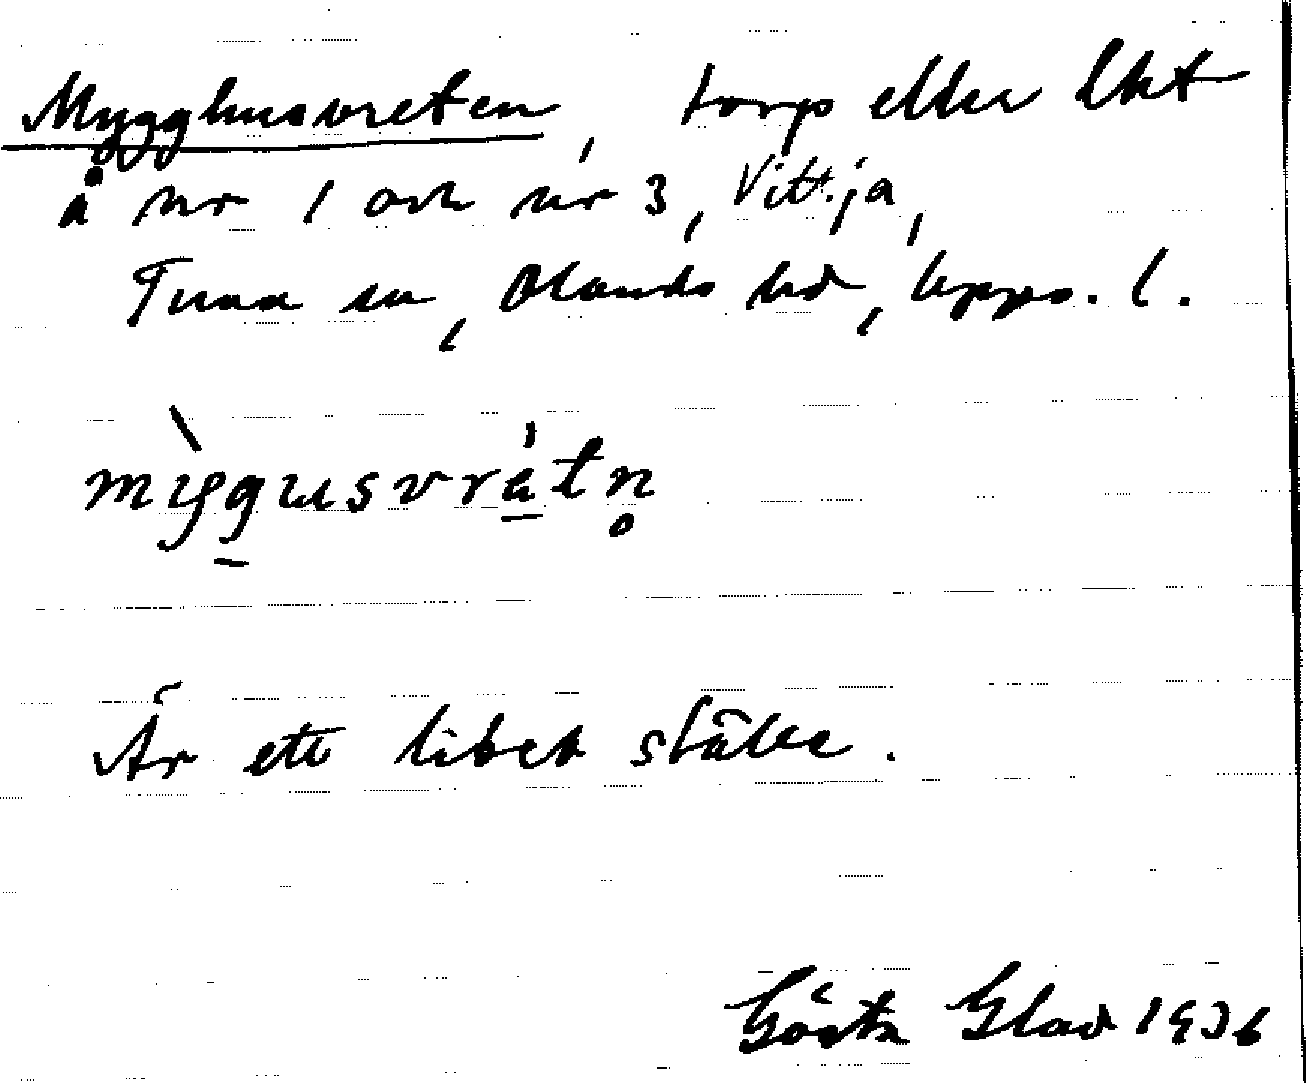 Mygghusvreten, torp eller lht
å nr 1 och nr 3, Vittja,
Tuna sn, Olands hd, Upps. l.
mỳgusvrátn̥
Är ett litet ställe.
Gösta Glad 1936